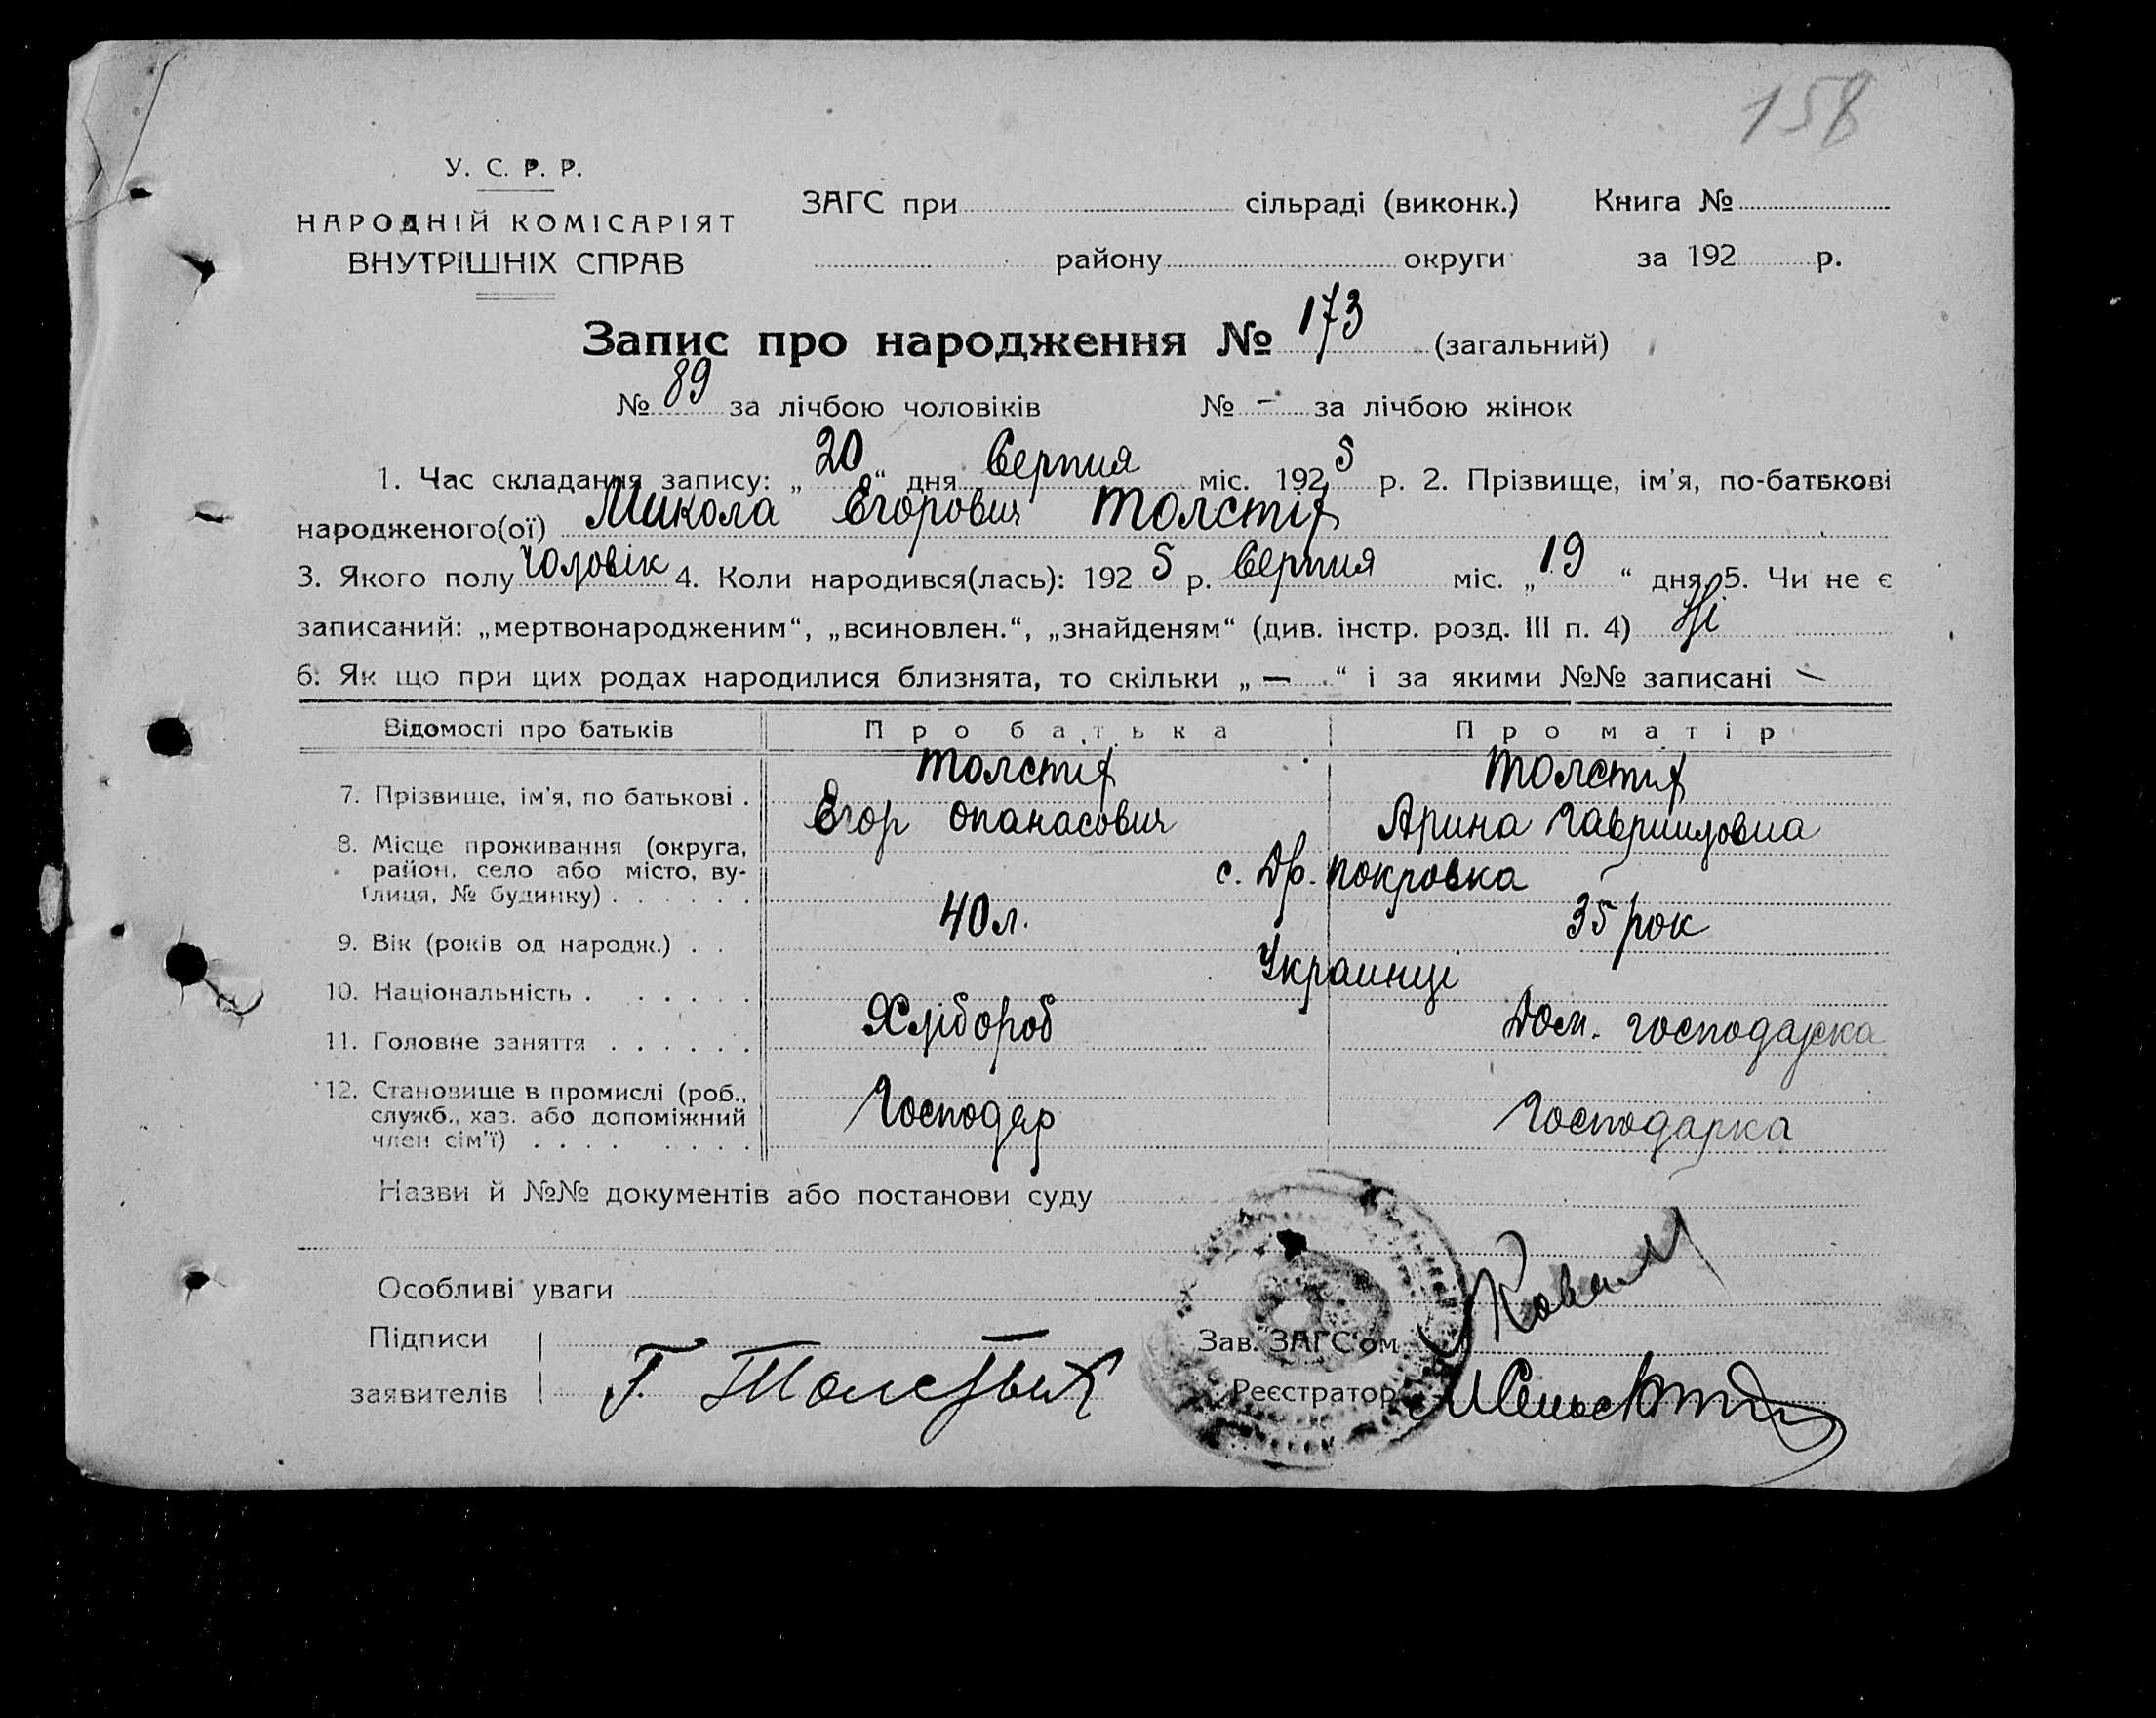 158
У. С. Р. Р.
НАРОДНІЙ КОМІСАРІЯТ
ВНУТРІШНІХ СПРАВ
ЗАГС при сільраді (виконк.) Книга №
району округи за 192 р.
Запис про народження № 173 (загальний)
№ 89 за лічбою чоловіків № - за лічбою жінок
1. Час складання запису: „20“ дня Серпня міс. 1925 р. 2. Прізвище, ім'я, по-батькові
народженого(ої) Микола Єгорович Толстіх
3. Якого полу Чоловік 4. Коли народився(лась): 1925 р. Серпня міс. „19“ дня 5. Чи не є
записаний: „мертвонародженим“, „всиновлен.“, „знайденям“ (див. інстр. розд. III п. 4) Ні
6. Як що при цих родах народилися близнята, то скільки „—“ і за якими №№ записані -
Відомості про батьків Про батька Про матір
Толстіх Толстих
7. Прізвище, ім'я, по батькові . Єгор Опанасович Арина Гаврииловна
8. Місце проживання (округа,
район, село або місто, ву-
лиця, № будинку) . . . . . . с. Др. Покровка
9. Вік (років од народж.) . . 40 л. 35 рок
10. Національність . . . . . . Украинці
11. Головне заняття . . . . . . Хлібороб Дом. господарка
12. Становище в промислі (роб.,
служб., хаз. або допоміжний
член сім'ї) . . . . . . . . Господар Господарка
Назви й №№ документів або постанови суду
Особливі уваги
Підписи
заявителів Г. Толстых
Зав. ЗАГС'ом Коваль
Реєстратор